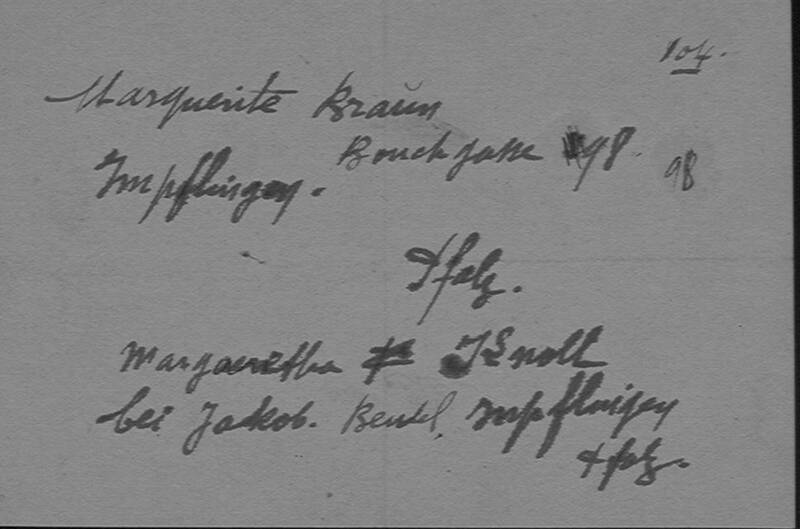 104.
Marguerite Braun
Bruchgasse 98.
98
Impflingen.
Pfalz.
Margaretha Knoll
bei Jakob. Beutel, Impflingen
Pfalz.